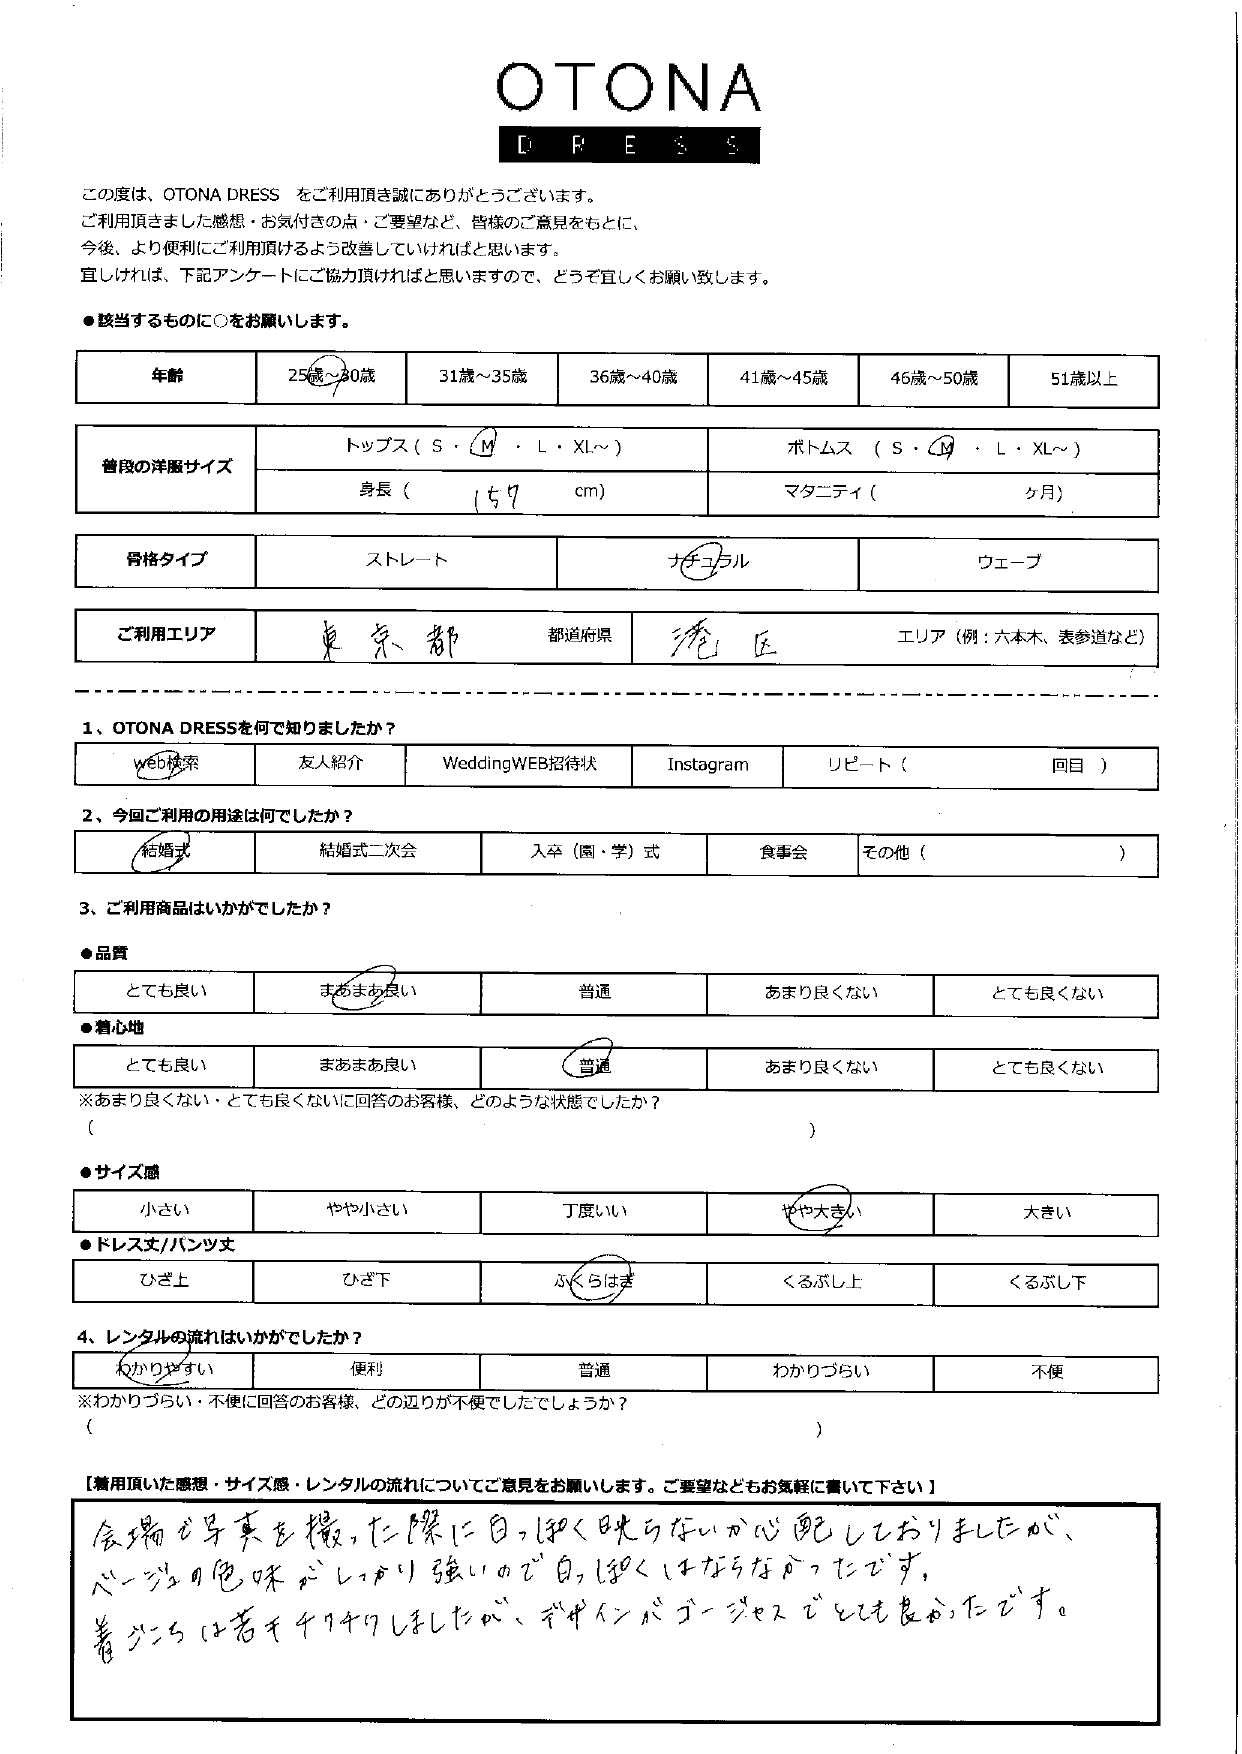 OTONA
DRESS
この度は、OTONA DRESS をご利用頂き誠にありがとうございます。
ご利用頂きました感想・お気付きの点・ご要望など、皆様のご意見をもとに、
今後、より便利にご利用頂けるよう改善していければと思います。
宜しければ、下記アンケートにご協力頂ければと思いますので、どうぞ宜しくお願い致します。
●該当するものに○をお願いします。
年齢 25歳～30歳 31歳～35歳 36歳～40歳 41歳～45歳 46歳～50歳 51歳以上
普段の洋服サイズ トップス ( S ・ M ・ L ・ XL～ ) ボトムス ( S ・ M ・ L ・ XL～ )
身長 ( 157 cm) マタニティ ( ヶ月)
骨格タイプ ストレート ナチュラル ウェーブ
ご利用エリア 東京都 都道府県 港区 エリア（例：六本木、表参道など）
1、OTONA DRESSを何で知りましたか？
web検索 友人紹介 WeddingWEB招待状 Instagram リピート ( 回目 )
2、今回ご利用の用途は何でしたか？
結婚式 結婚式二次会 入卒（園・学）式 食事会 その他 ( )
3、ご利用商品はいかがでしたか？
●品質
とても良い まあまあ良い 普通 あまり良くない とても良くない
●着心地
とても良い まあまあ良い 普通 あまり良くない とても良くない
※あまり良くない・とても良くないに回答のお客様、どのような状態でしたか？
( )
●サイズ感
小さい やや小さい 丁度いい やや大きい 大きい
●ドレス丈/パンツ丈
ひざ上 ひざ下 ふくらはぎ くるぶし上 くるぶし下
4、レンタルの流れはいかがでしたか？
わかりやすい 便利 普通 わかりづらい 不便
※わかりづらい・不便に回答のお客様、どの辺りが不便でしたでしょうか？
( )
【着用頂いた感想・サイズ感・レンタルの流れについてご意見をお願いします。ご要望などもお気軽に書いて下さい】
会場で写真を撮った際に白っぽく映らないか心配しておりましたが、
ベージュの色味がしっかり強いので白っぽくはならなかったです。
着ごこちは若干チクチクしましたが、デザインがゴージャスでとても良かったです。